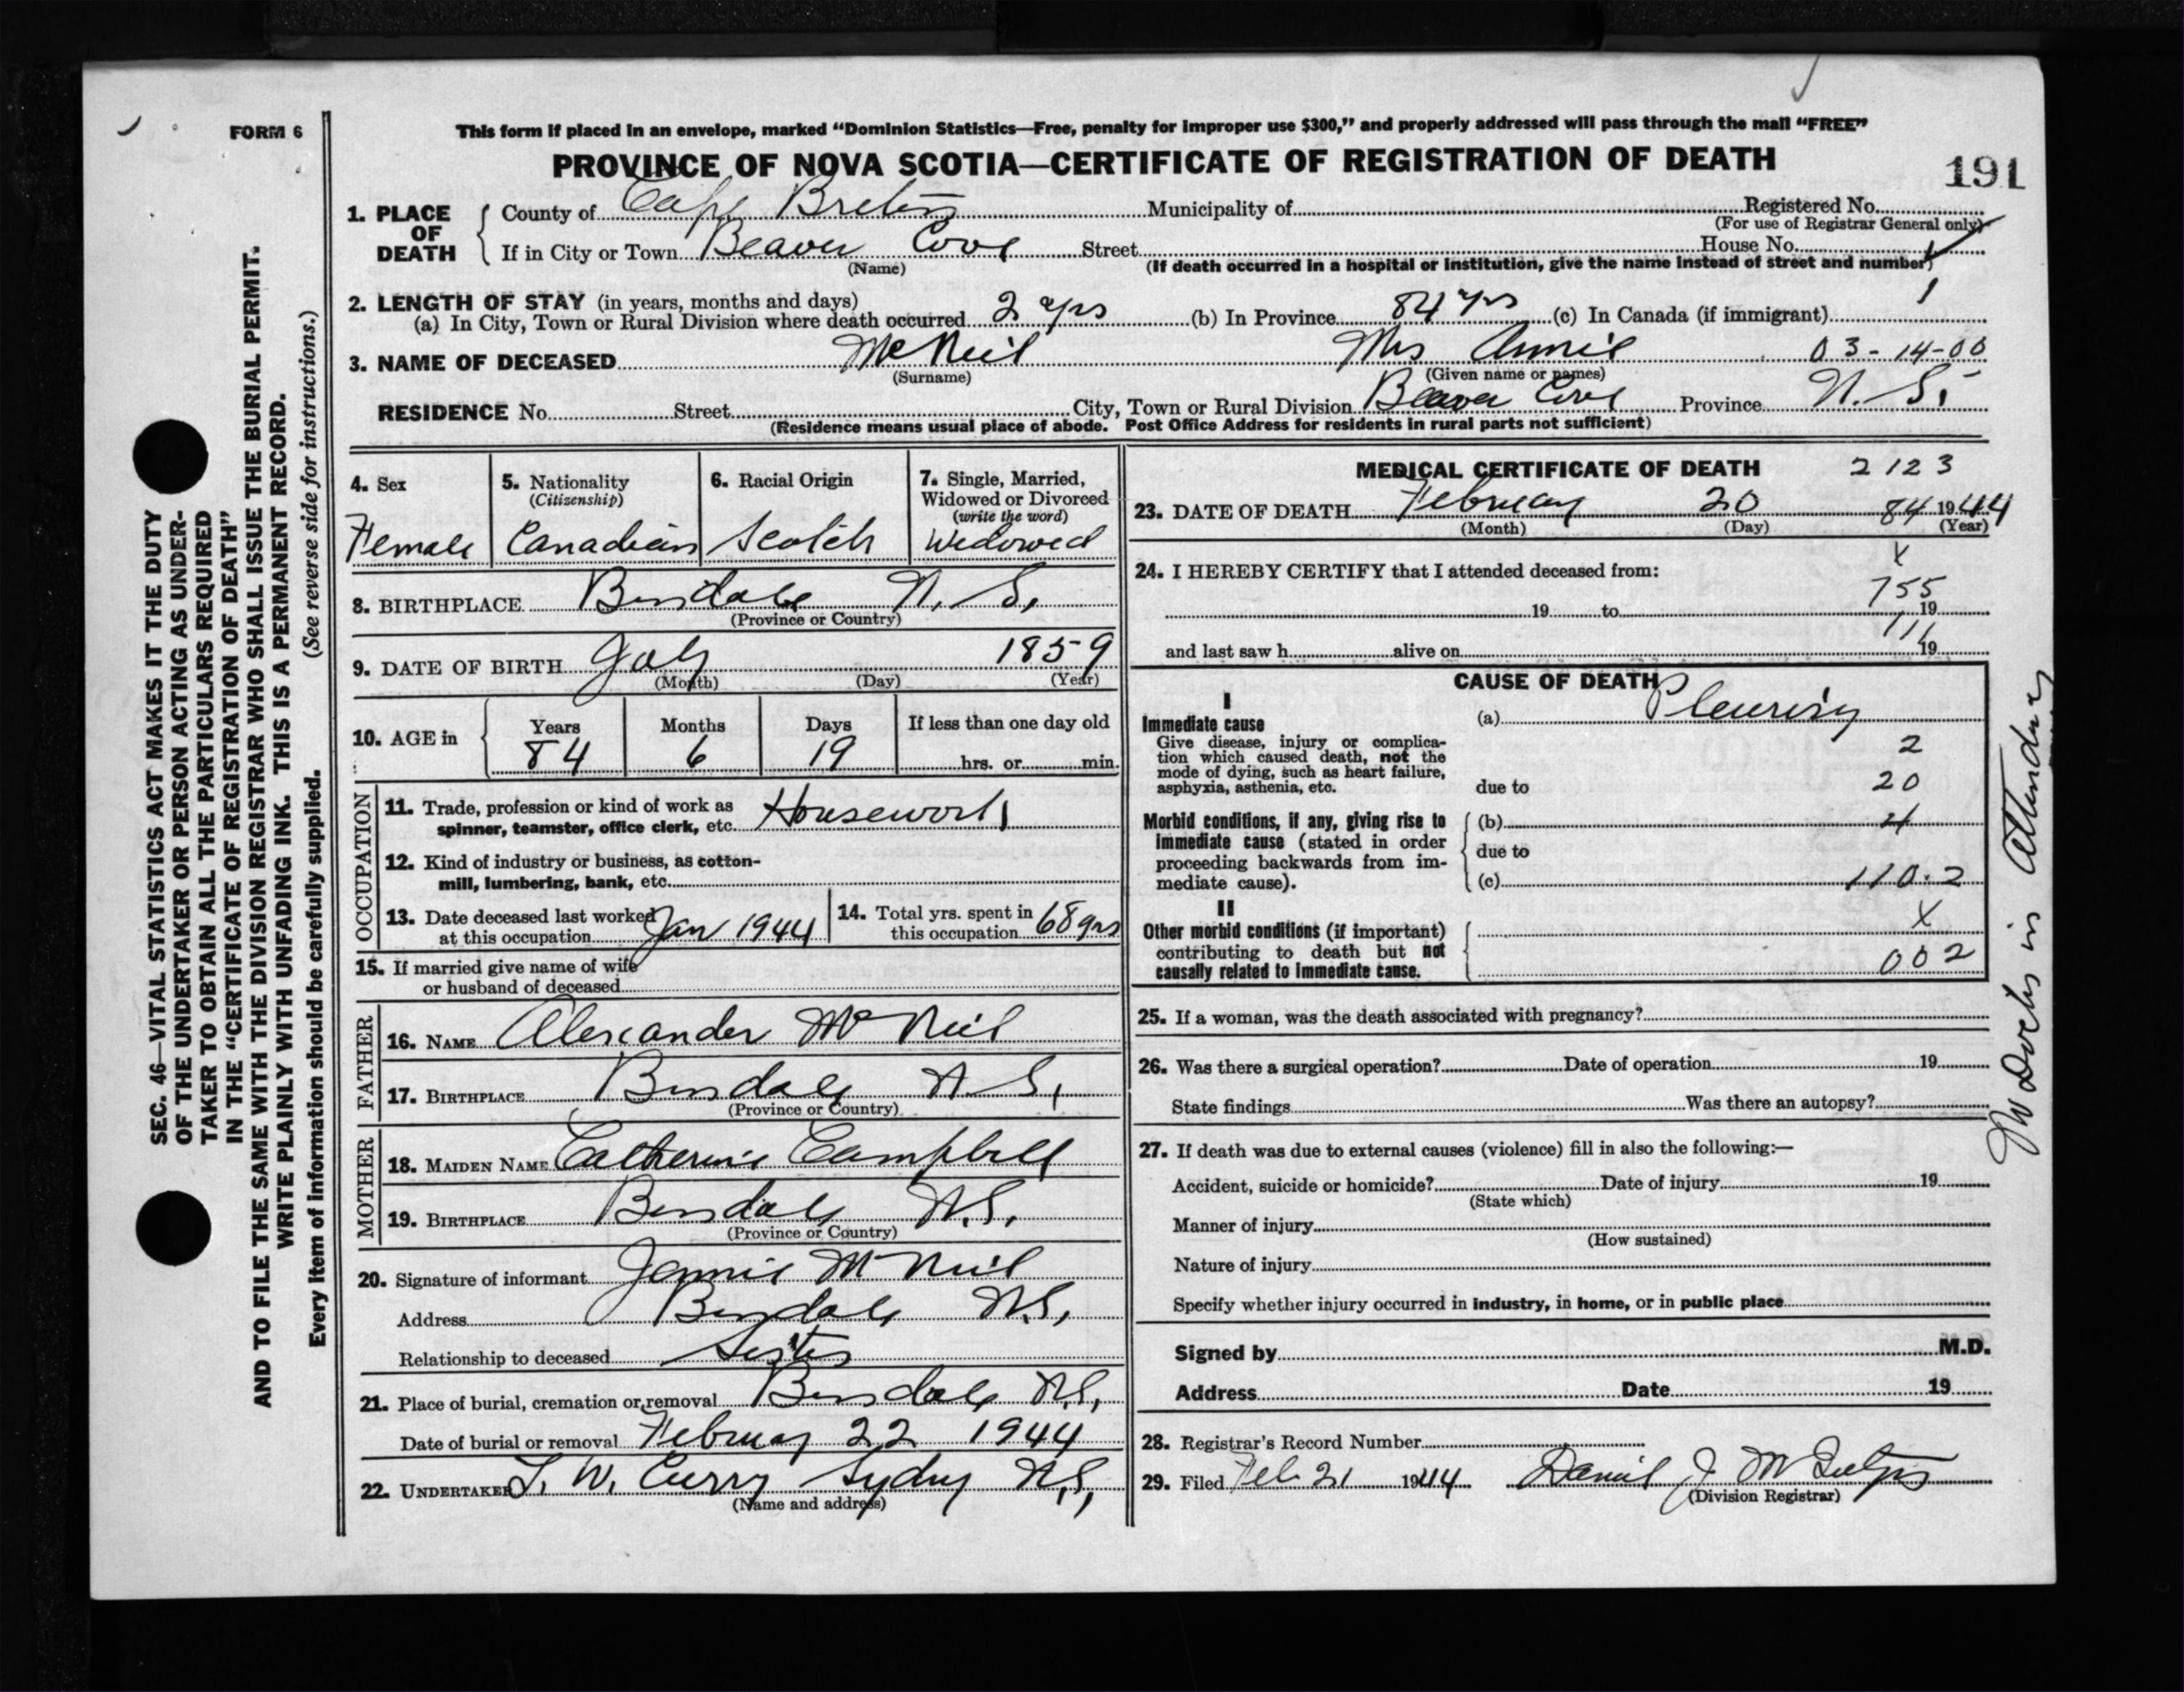 FORM 6
This form if placed in an envelope, marked "Dominion Statistics—Free, penalty for improper use $300," and properly addressed will pass through the mail "FREE"
PROVINCE OF NOVA SCOTIA—CERTIFICATE OF REGISTRATION OF DEATH
191
1. PLACE OF DEATH
County of Cape Breton Municipality of Registered No.
(For use of Registrar General only)
If in City or Town Beaver Cove Street House No.
(Name) (If death occurred in a hospital or institution, give the name instead of street and number)
2. LENGTH OF STAY (in years, months and days)
(a) In City, Town or Rural Division where death occurred 2 yrs (b) In Province 84 yrs (c) In Canada (if immigrant) 1
3. NAME OF DECEASED McNeil Mrs Annie 03-14-00
(Surname) (Given name or names)
RESIDENCE No. Street City, Town or Rural Division Beaver Cove Province N. S.
(Residence means usual place of abode. Post Office Address for residents in rural parts not sufficient)
4. Sex
Female
5. Nationality
(Citizenship)
Canadian
6. Racial Origin
Scotch
7. Single, Married,
Widowed or Divorced
(write the word)
Widowed
8. BIRTHPLACE N. S.
(Province or Country)
9. DATE OF BIRTH July 1859
(Month) (Day) (Year)
10. AGE in
Years Months Days If less than one day old
84 6 19 hrs. or min.
OCCUPATION
11. Trade, profession or kind of work as
spinner, teamster, office clerk, etc. Housework
12. Kind of industry or business, as cotton-
mill, lumbering, bank, etc.
13. Date deceased last worked
at this occupation Jan 1944
14. Total yrs. spent in
this occupation 68 yrs
15. If married give name of wife
or husband of deceased
FATHER
16. NAME Alexander McNeil
17. BIRTHPLACE N. S.
(Province or Country)
MOTHER
18. MAIDEN NAME Catherine Campbell
19. BIRTHPLACE N.S.
(Province or Country)
20. Signature of informant Jennie McNeil
Address N.S.
Relationship to deceased Sister
21. Place of burial, cremation or removal N.S.
Date of burial or removal February 22 1944
22. UNDERTAKER W. Curry Sydney N.S.
(Name and address)
MEDICAL CERTIFICATE OF DEATH 2123
23. DATE OF DEATH February 20 84 1944
(Month) (Day) (Year)
X
24. I HEREBY CERTIFY that I attended deceased from:
755
19 to 19
111
and last saw h alive on 19
CAUSE OF DEATH
I
Immediate cause
Give disease, injury or complica-
tion which caused death, not the
mode of dying, such as heart failure,
asphyxia, asthenia, etc.
(a) Pleurisy
2
due to 20
Morbid conditions, if any, giving rise to
immediate cause (stated in order
proceeding backwards from im-
mediate cause).
(b)
due to
(c) 110.2
II
Other morbid conditions (if important)
contributing to death but not
causally related to immediate cause.
X
002
25. If a woman, was the death associated with pregnancy?
26. Was there a surgical operation? Date of operation 19
State findings Was there an autopsy?
27. If death was due to external causes (violence) fill in also the following:—
Accident, suicide or homicide? Date of injury 19
(State which)
Manner of injury
(How sustained)
Nature of injury
Specify whether injury occurred in industry, in home, or in public place
Signed by M.D.
Address Date 19
28. Registrar's Record Number
29. Filed Feb 21 1944 Daniel J.
(Division Registrar)
in Attendance
SEC. 46—VITAL STATISTICS ACT MAKES IT THE DUTY
OF THE UNDERTAKER OR PERSON ACTING AS UNDER-
TAKER TO OBTAIN ALL THE PARTICULARS REQUIRED
IN THE "CERTIFICATE OF REGISTRATION OF DEATH"
AND TO FILE THE SAME WITH THE DIVISION REGISTRAR WHO SHALL ISSUE THE BURIAL PERMIT.
WRITE PLAINLY WITH UNFADING INK. THIS IS A PERMANENT RECORD.
Every item of information should be carefully supplied. (See reverse side for instructions.)